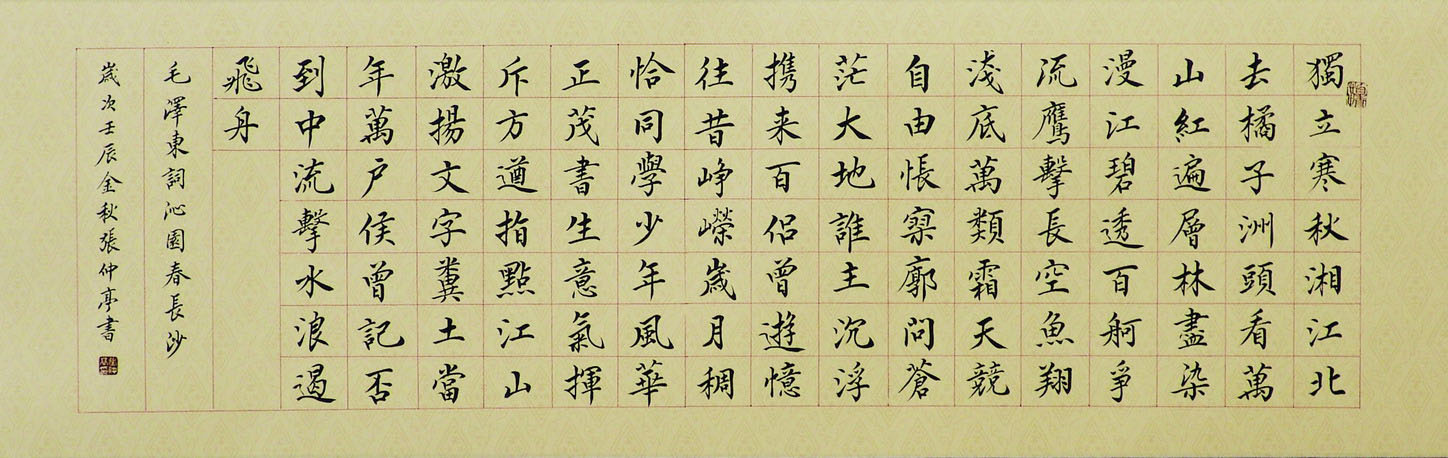 獨立寒秋湘江北
去橘子洲頭看萬
山紅遍層林盡染
漫江碧透百舸爭
流鷹擊長空魚翔
淺底萬類霜天競
自由悵寥廓問蒼
茫大地誰主沉浮
携来百侣曾遊憶
往昔崢嶸歲月稠
恰同學少年風華
正茂書生意氣揮
斥方遒指點江山
激揚文字糞土當
年萬戶侯曾記否
到中流擊水浪遏
飛舟
毛澤東詞沁園春長沙
歲次壬辰金秋張仲亭書